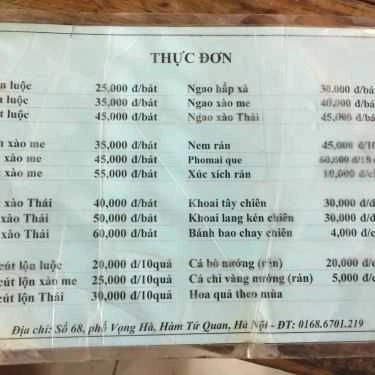 THỰC ĐƠN
luộc 25,000 đ/bát Ngao hấp xả 30.000 đ/bá
luộc 35,000 đ/bát Ngao xào me 40,000 đ/bá
luộc 45,000 đ/bát Ngao xào Thái 45,000 đ/bá
xào me 35,000 đ/bát Nem rán 45,000 đ/10
xào me 45,000 đ/bát Phomai que
xào me 55,000 đ/bát Xúc xích rán 10,000 đ/c
xào Thái 40,000 đ/bát Khoai tây chiên 30,000 đ/
xào Thái 50,000 đ/bát Khoai lang kén chiên 30,000 đ/
xào Thái 60,000 đ/bát Bánh bao chay chiên 4,000 c/
cút lộn luộc 20,000 đ/10quả Cá bò nướng (rán) 20,000 đ/c
cút lộn xào me 25,000 đ/10quả Cá chỉ vàng nướng (rán) 5,000 đ/c
cút lộn Thái 30,000 đ/10quả Hoa quả theo mùa
Địa chỉ: Số 68, phố Vọng Hà, Hàm Tử Quan, Hà Nội - ĐT: 0168.6701.219